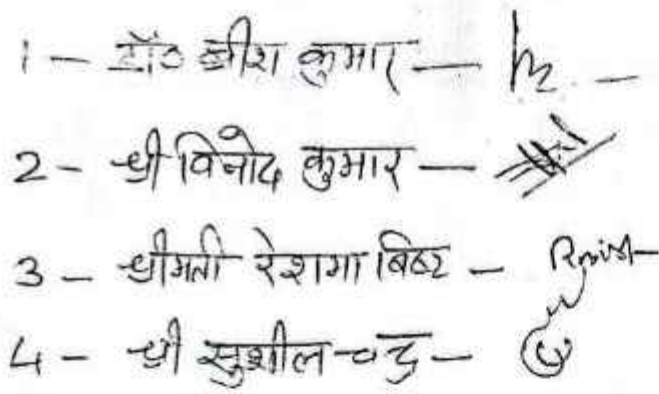 1 - डॉ० ब्रीश कुमार -
2 - श्री विनोद कुमार -
3 - श्रीमती रेशमा बिष्ट -
4 - श्री सुशील चन्द्र -